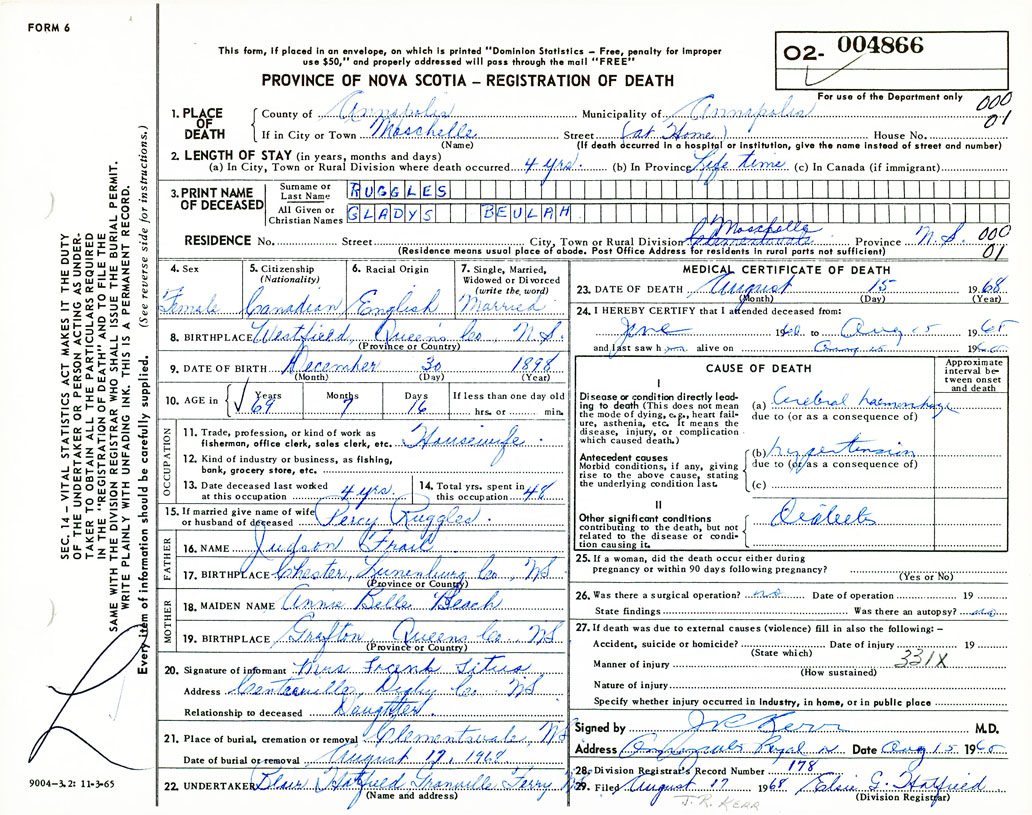 FORM 6
This form, if placed in an envelope, on which is printed "Dominion Statistics – Free, penalty for improper
use $50," and properly addressed will pass through the mail "FREE"
PROVINCE OF NOVA SCOTIA – REGISTRATION OF DEATH
O2- 004866
For use of the Department only
000
01
1. PLACE OF DEATH
County of Annapolis Municipality of Annapolis
If in City or Town Moschelle Street (at Home) House No.
(Name) (If death occurred in a hospital or institution, give the name instead of street and number)
2. LENGTH OF STAY (in years, months and days)
(a) In City, Town or Rural Division where death occurred 4 yrs. (b) In Province Life time (c) In Canada (if immigrant)
3. PRINT NAME OF DECEASED
Surname or Last Name RUGGLES
All Given or Christian Names GLADYS BEULAH
Moschelle 000
RESIDENCE No. Street City, Town or Rural Division Clementsvale Province N.S.
(Residence means usual place of abode. Post Office Address for residents in rural parts not sufficient) 01
4. Sex Female
5. Citizenship (Nationality) Canadian
6. Racial Origin English
7. Single, Married, Widowed or Divorced (write the word) Married
8. BIRTHPLACE Westfield, Queen's Co N.S.
(Province or Country)
9. DATE OF BIRTH December 30 1898
(Month) (Day) (Year)
10. AGE in Years 69 Months 7 Days 16 If less than one day old hrs. or min.
OCCUPATION
11. Trade, profession, or kind of work as fisherman, office clerk, sales clerk, etc. Housewife.
12. Kind of industry or business, as fishing, bank, grocery store, etc.
13. Date deceased last worked at this occupation 4 yrs.
14. Total yrs. spent in this occupation 48
15. If married give name of wife or husband of deceased Percy Ruggles.
FATHER
16. NAME Judson Frail
17. BIRTHPLACE Chester, Lunenburg Co, NS
(Province or Country)
MOTHER
18. MAIDEN NAME Annie Belle Beach
19. BIRTHPLACE Grafton, Queens Co NS
(Province or Country)
20. Signature of informant Mrs Titus
Address Centreville, Digby Co NS
Relationship to deceased Daughter.
21. Place of burial, cremation or removal Clementsvale, NS
Date of burial or removal August 17, 1968
22. UNDERTAKER Blair Hatfield Granville Ferry NS
(Name and address)
MEDICAL CERTIFICATE OF DEATH
23. DATE OF DEATH August 15 1968
(Month) (Day) (Year)
24. I HEREBY CERTIFY that I attended deceased from:
June 19 to Aug 15 1968
and last saw h alive on Aug 15 19
CAUSE OF DEATH
Approximate interval between onset and death
I
Disease or condition directly leading to death (This does not mean the mode of dying, e.g., heart failure, asthenia, etc. It means the disease, injury, or complication which caused death.)
(a) Cerebral haemorrhage
due to (or as a consequence of)
Antecedent causes
Morbid conditions, if any, giving rise to the above cause, stating the underlying condition last.
(b) hypertension
due to (or as a consequence of)
(c)
II
Other significant conditions contributing to the death, but not related to the disease or condition causing it.
Diabetes
25. If a woman, did the death occur either during pregnancy or within 90 days following pregnancy?
(Yes or No)
26. Was there a surgical operation? no Date of operation 19
State findings Was there an autopsy? no
27. If death was due to external causes (violence) fill in also the following: –
Accident, suicide or homicide? Date of injury 19
(State which)
Manner of injury 331X
(How sustained)
Nature of injury
Specify whether injury occurred in industry, in home, or in public place
Signed by J R Kerr M.D.
Address Annapolis Royal Date Aug 15 19
28. Division Registrar's Record Number 178
29. Filed August 17 1968 Elsie G. Hatfield
(Division Registrar)
J. R. KERR
SEC. 14 – VITAL STATISTICS ACT MAKES IT THE DUTY
OF THE UNDERTAKER OR PERSON ACTING AS UNDERTAKER TO OBTAIN ALL THE PARTICULARS REQUIRED
IN THE "REGISTRATION OF DEATH" AND TO FILE THE
SAME WITH THE DIVISION REGISTRAR WHO SHALL ISSUE THE BURIAL PERMIT.
WRITE PLAINLY WITH UNFADING INK. THIS IS A PERMANENT RECORD.
Every item of information should be carefully supplied. (See reverse side for instructions.)
9004-3.2: 11-3-65